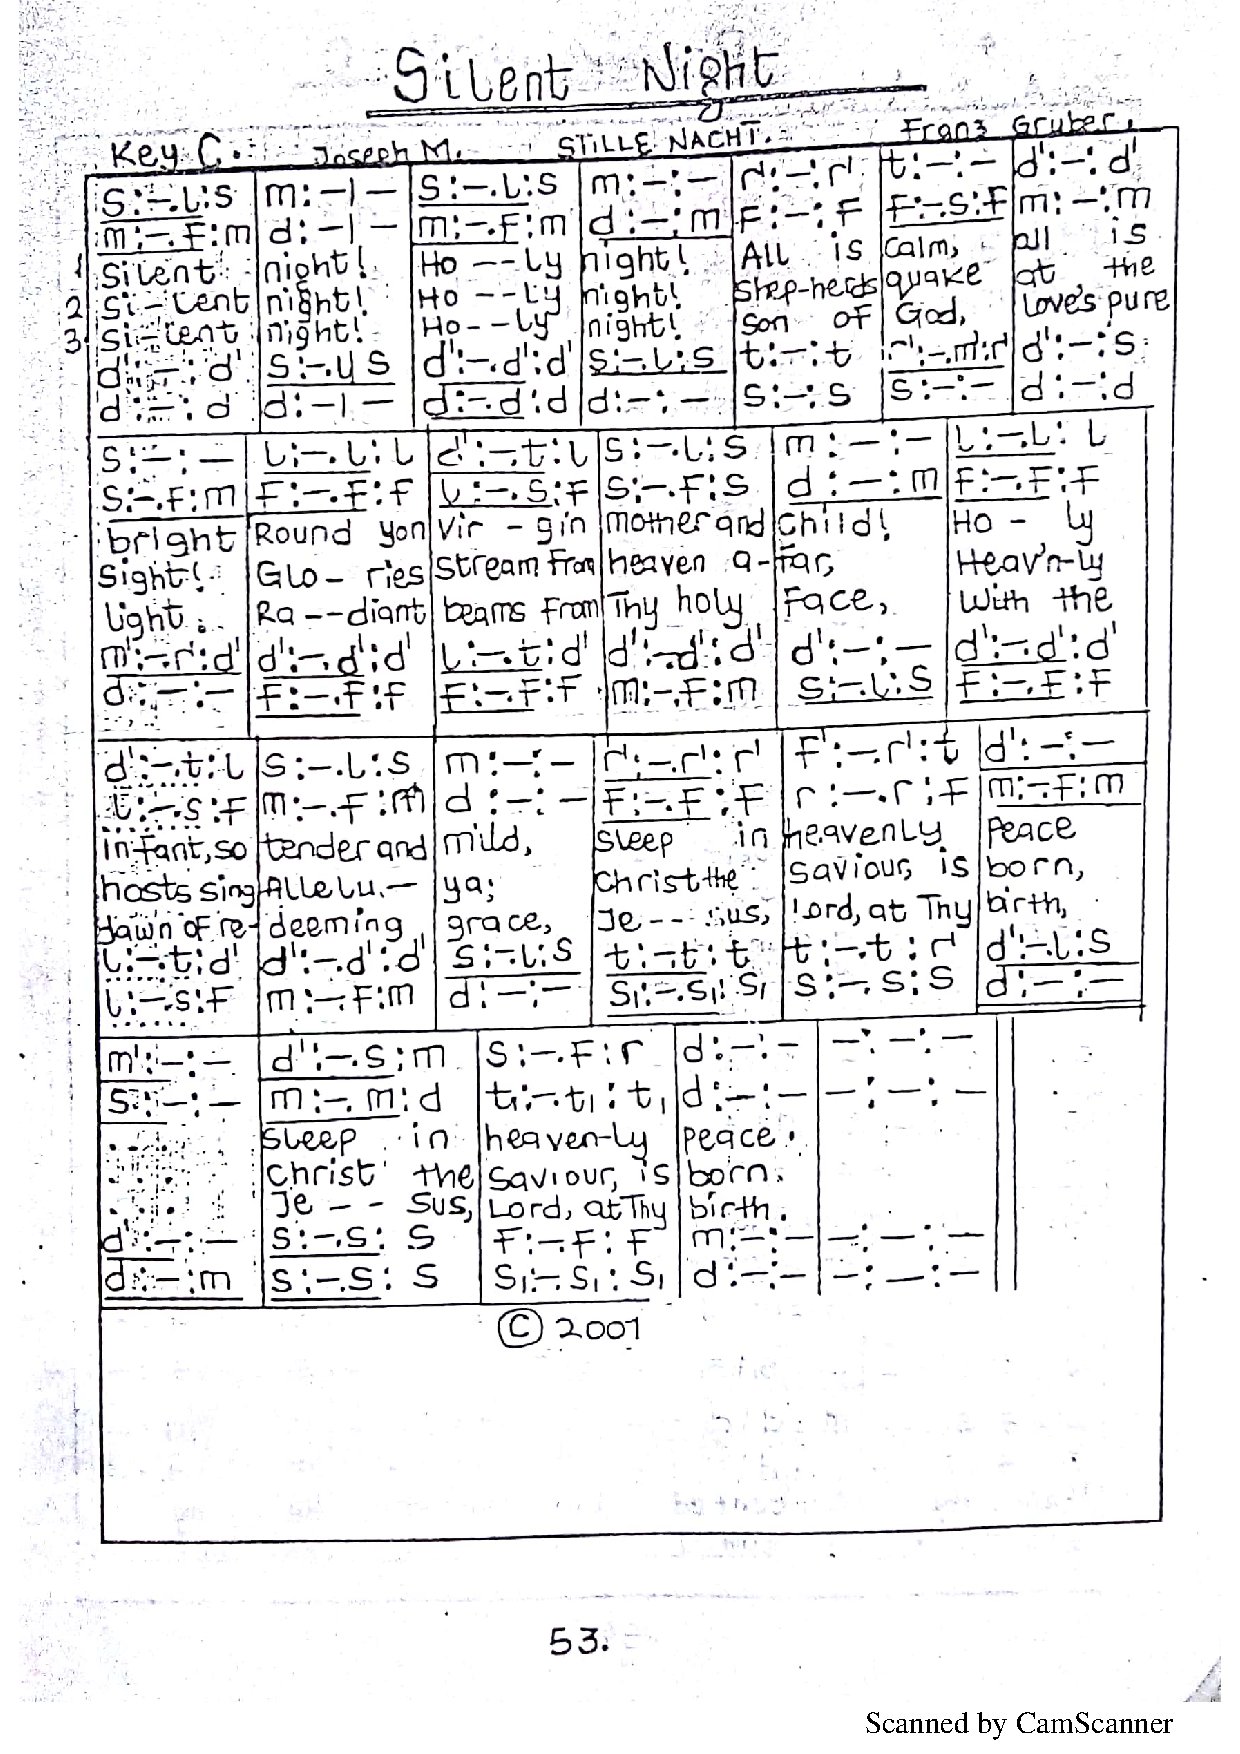 Silent Night
Key C. Joseph M. STILLE NACHT. Franz Gruber.
s:-.l:s | m:-|- | s:-.l:s | m:-:- | r':-:r' | t:-:- | d':-:d'
m:-.f:m | d:-|- | m:-.f:m | d:-:m | f:-:f | f:-.s:f | m:-:m
1 Silent night! Ho--ly night! All is calm, all is
2 Si-lent night! Ho--ly night! Shep-herds quake at the
3 Si-lent night! Ho--ly night! Son of God, Love's pure
d':-:d' | s:-.l/s | d':-.d':d' | s:-.l:s | t:-:t | r':-.m':r' | d':-:s
d:-:d | d:-|- | d:-.d:d | d:-:- | s:-:s | s:-:- | d:-:d
s:-:- | l:-.l:l | d':-.t:l | s:-.l:s | m:-:- | l:-.l:l
s:-.f:m | f:-.f:f | l:-.s:f | s:-.f:s | d:-:m | f:-.f:f
bright Round yon Vir-gin mother and child! Ho-ly
sight! Glo-ries stream from heaven a-far, Heav'n-ly
light. Ra--diant beams from Thy holy Face, With the
m':-.r':d' | d':-.d':d' | l:-.t:d' | d':-.d':d' | d':-:- | d':-.d':d'
d:-:- | f:-.f:f | f:-.f:f | m:-.f:m | s:-.l:s | f:-.f:f
d':-.t:l | s:-.l:s | m:-:- | r':-.r':r' | f':-.r':t | d':-:-
l:-.s:f | m:-.f:m | d:-:- | f:-.f:f | r:-.r:f | m:-.f:m
infant, so tender and mild, Sleep in heavenly Peace
hosts sing Allelu.- ya; Christ the saviour, is born,
dawn of re-deeming grace, Je---sus, Lord, at Thy birth,
l:-.t:d' | d':-.d':d' | s:-.l:s | t:-.t:t | t:-.t:r' | d':-.l:s
l:-.s:f | m:-.f:m | d:-:- | s₁:-.s₁:s₁ | s:-.s:s | d:-:-
m':-:- | d':-.s:m | s:-.f:r | d:-:- | -:-:-
s:-:- | m:-.m:d | t₁:-.t₁:t₁ | d:-:- | -:-:-
Sleep in heaven-ly peace.
Christ the Saviour, is born.
Je---sus, Lord, at Thy birth.
d':-:- | s:-.s:s | f:-.f:f | m:-:- | -:-:-
d:-:m | s:-.s:s | s₁:-.s₁:s₁ | d:-:- | -:-:-
© 2001
53.
Scanned by CamScanner